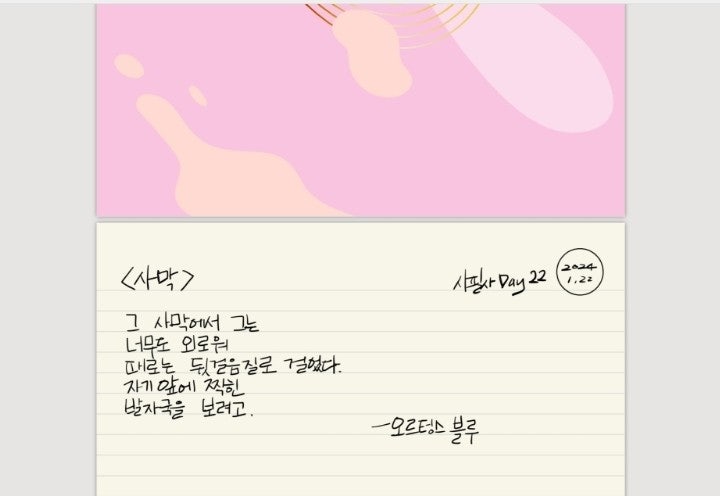 <사막>
시필사 Day 22
2024
1.22
그 사막에서 그는
너무도 외로워
때로는 뒷걸음질로 걸었다.
자기 앞에 찍힌
발자국을 보려고.
-오르텅스 블루